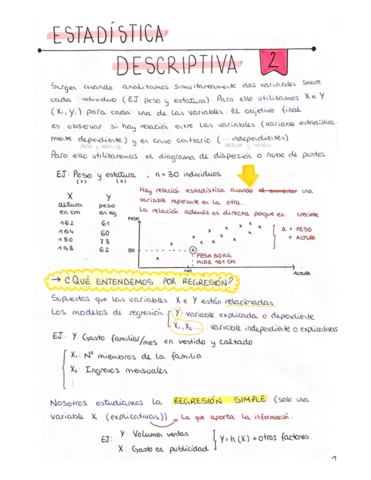 ESTADÍSTICA
DESCRIPTIVA 2
Surge cuando analizamos simultaneamente dos variables sobre
cada individuo (EJ peso y estatura) Para ello utilizamos X e Y
(Xi, Yi) para cada una de las variables. El objetivo final
es observar si hay relación entre las variables (variable estadística-
mente dependiente) y en caso contrario (.. independientes)
Para ello utilizaremos el diagrama de dispesión o nube de puntos
EJ: Peso y estatura , n = 30 individuos
(Y) (X)
Hay relación estadística cuando una
variable repercute en la otra.
La relación además es directa porque es creciente
X Y
altura peso
en cm en kg
162 61
164 60
180 78
158 62
PESO
50
160
ALTURA
PESA 50KG
MIDE 161 CM
a + PESO
+ ALTURA
→ ¿QUÉ ENTENDEMOS POR REGRESIÓN?
Supuestos que las variables X e Y están relacionadas.
Los modelos de regresión Y variable explicada o dependiente
X1, X2... variable independiente o explicativa
EJ: Y Gasto familiar/mes en vestido y calzado
X1: Nº miembros de la familia
X2: Ingresos mensuales
⋮
Nosotros estudiamos la REGRESIÓN SIMPLE (solo una
variable X (explicativa)) → La que aporta la información.
EJ: Y: Volumen ventas
X: Gasto en publicidad
Y = h (X) + otros factores.
1